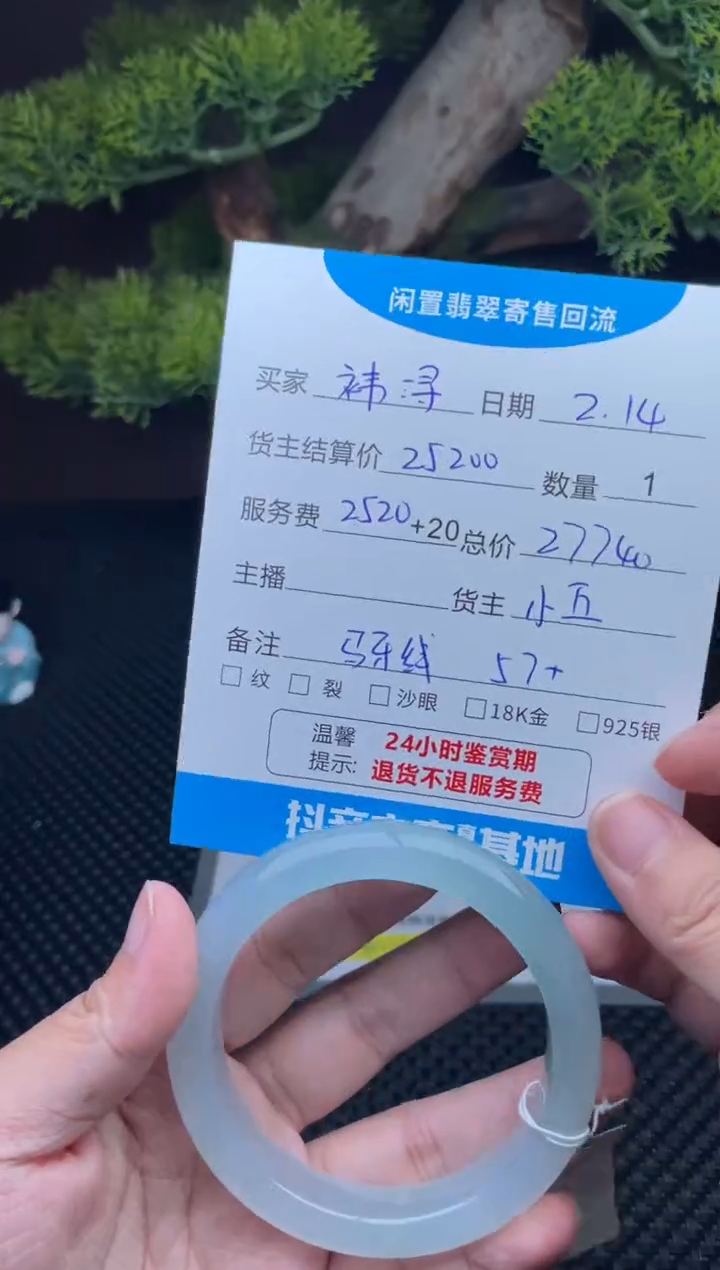 闲置翡翠寄售回流
买家 祎浔 日期 2.14
货主结算价 25200 数量 1
服务费 2520+20 总价 27740
主播 货主 小五
备注 马牙线 57+
□ 纹 □ 裂 □ 沙眼 □ 18K金 □ 925银
温馨提示: 24小时鉴赏期
退货不退服务费
抖音 基地